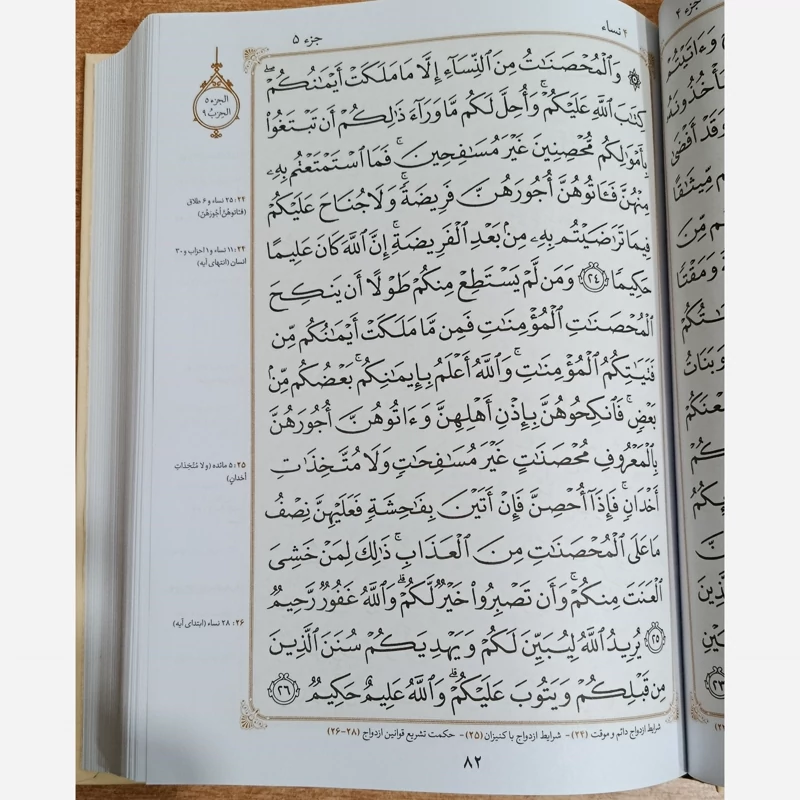 ۴ نساء
جزء ۵
وَالْمُحْصَنَاتُ مِنَ النِّسَاءِ إِلَّا مَا مَلَكَتْ أَيْمَانُكُمْ ۖ
كِتَابَ اللَّهِ عَلَيْكُمْ ۚ وَأُحِلَّ لَكُم مَّا وَرَاءَ ذَٰلِكُمْ أَن تَبْتَغُوا
بِأَمْوَالِكُم مُّحْصِنِينَ غَيْرَ مُسَافِحِينَ ۚ فَمَا اسْتَمْتَعْتُم بِهِ
مِنْهُنَّ فَـَٔاتُوهُنَّ أُجُورَهُنَّ فَرِيضَةً ۚ وَلَا جُنَاحَ عَلَيْكُمْ
فِيمَا تَرَاضَيْتُم بِهِ مِن بَعْدِ الْفَرِيضَةِ ۚ إِنَّ اللَّهَ كَانَ عَلِيمًا
حَكِيمًا ﴿٢٤﴾ وَمَن لَّمْ يَسْتَطِعْ مِنكُمْ طَوْلًا أَن يَنكِحَ
الْمُحْصَنَاتِ الْمُؤْمِنَاتِ فَمِن مَّا مَلَكَتْ أَيْمَانُكُم مِّن
فَتَيَاتِكُمُ الْمُؤْمِنَاتِ ۚ وَاللَّهُ أَعْلَمُ بِإِيمَانِكُم ۚ بَعْضُكُم مِّن
بَعْضٍ ۚ فَانكِحُوهُنَّ بِإِذْنِ أَهْلِهِنَّ وَءَاتُوهُنَّ أُجُورَهُنَّ
بِالْمَعْرُوفِ مُحْصَنَاتٍ غَيْرَ مُسَافِحَاتٍ وَلَا مُتَّخِذَاتِ
أَخْدَانٍ ۚ فَإِذَا أُحْصِنَّ فَإِنْ أَتَيْنَ بِفَاحِشَةٍ فَعَلَيْهِنَّ نِصْفُ
مَا عَلَى الْمُحْصَنَاتِ مِنَ الْعَذَابِ ۚ ذَٰلِكَ لِمَنْ خَشِيَ
الْعَنَتَ مِنكُمْ ۚ وَأَن تَصْبِرُوا خَيْرٌ لَّكُمْ ۗ وَاللَّهُ غَفُورٌ رَّحِيمٌ
﴿٢٥﴾ يُرِيدُ اللَّهُ لِيُبَيِّنَ لَكُمْ وَيَهْدِيَكُمْ سُنَنَ الَّذِينَ
مِن قَبْلِكُمْ وَيَتُوبَ عَلَيْكُمْ ۗ وَاللَّهُ عَلِيمٌ حَكِيمٌ ﴿٢٦﴾
الجزء ۵
الحزب ۹
۲۴: ۲۵ نساء و ۶ طلاق
(فَـَٔاتُوهُنَّ أُجُورَهُنَّ)
۲۴: ۱۱ نساء و ۱ احزاب و ۳۰
انسان (انتهای آیه)
۲۵: ۵ مائده (و لا مُتَّخِذاتِ
أخدانٍ)
۲۶: ۲۸ نساء (ابتدای آیه)
شرایط ازدواج دائم و موقت (۲۴)- شرایط ازدواج با کنیزان (۲۵)- حکمت تشریع قوانین ازدواج (۲۸-۲۶)
۸۲
جزء ۴